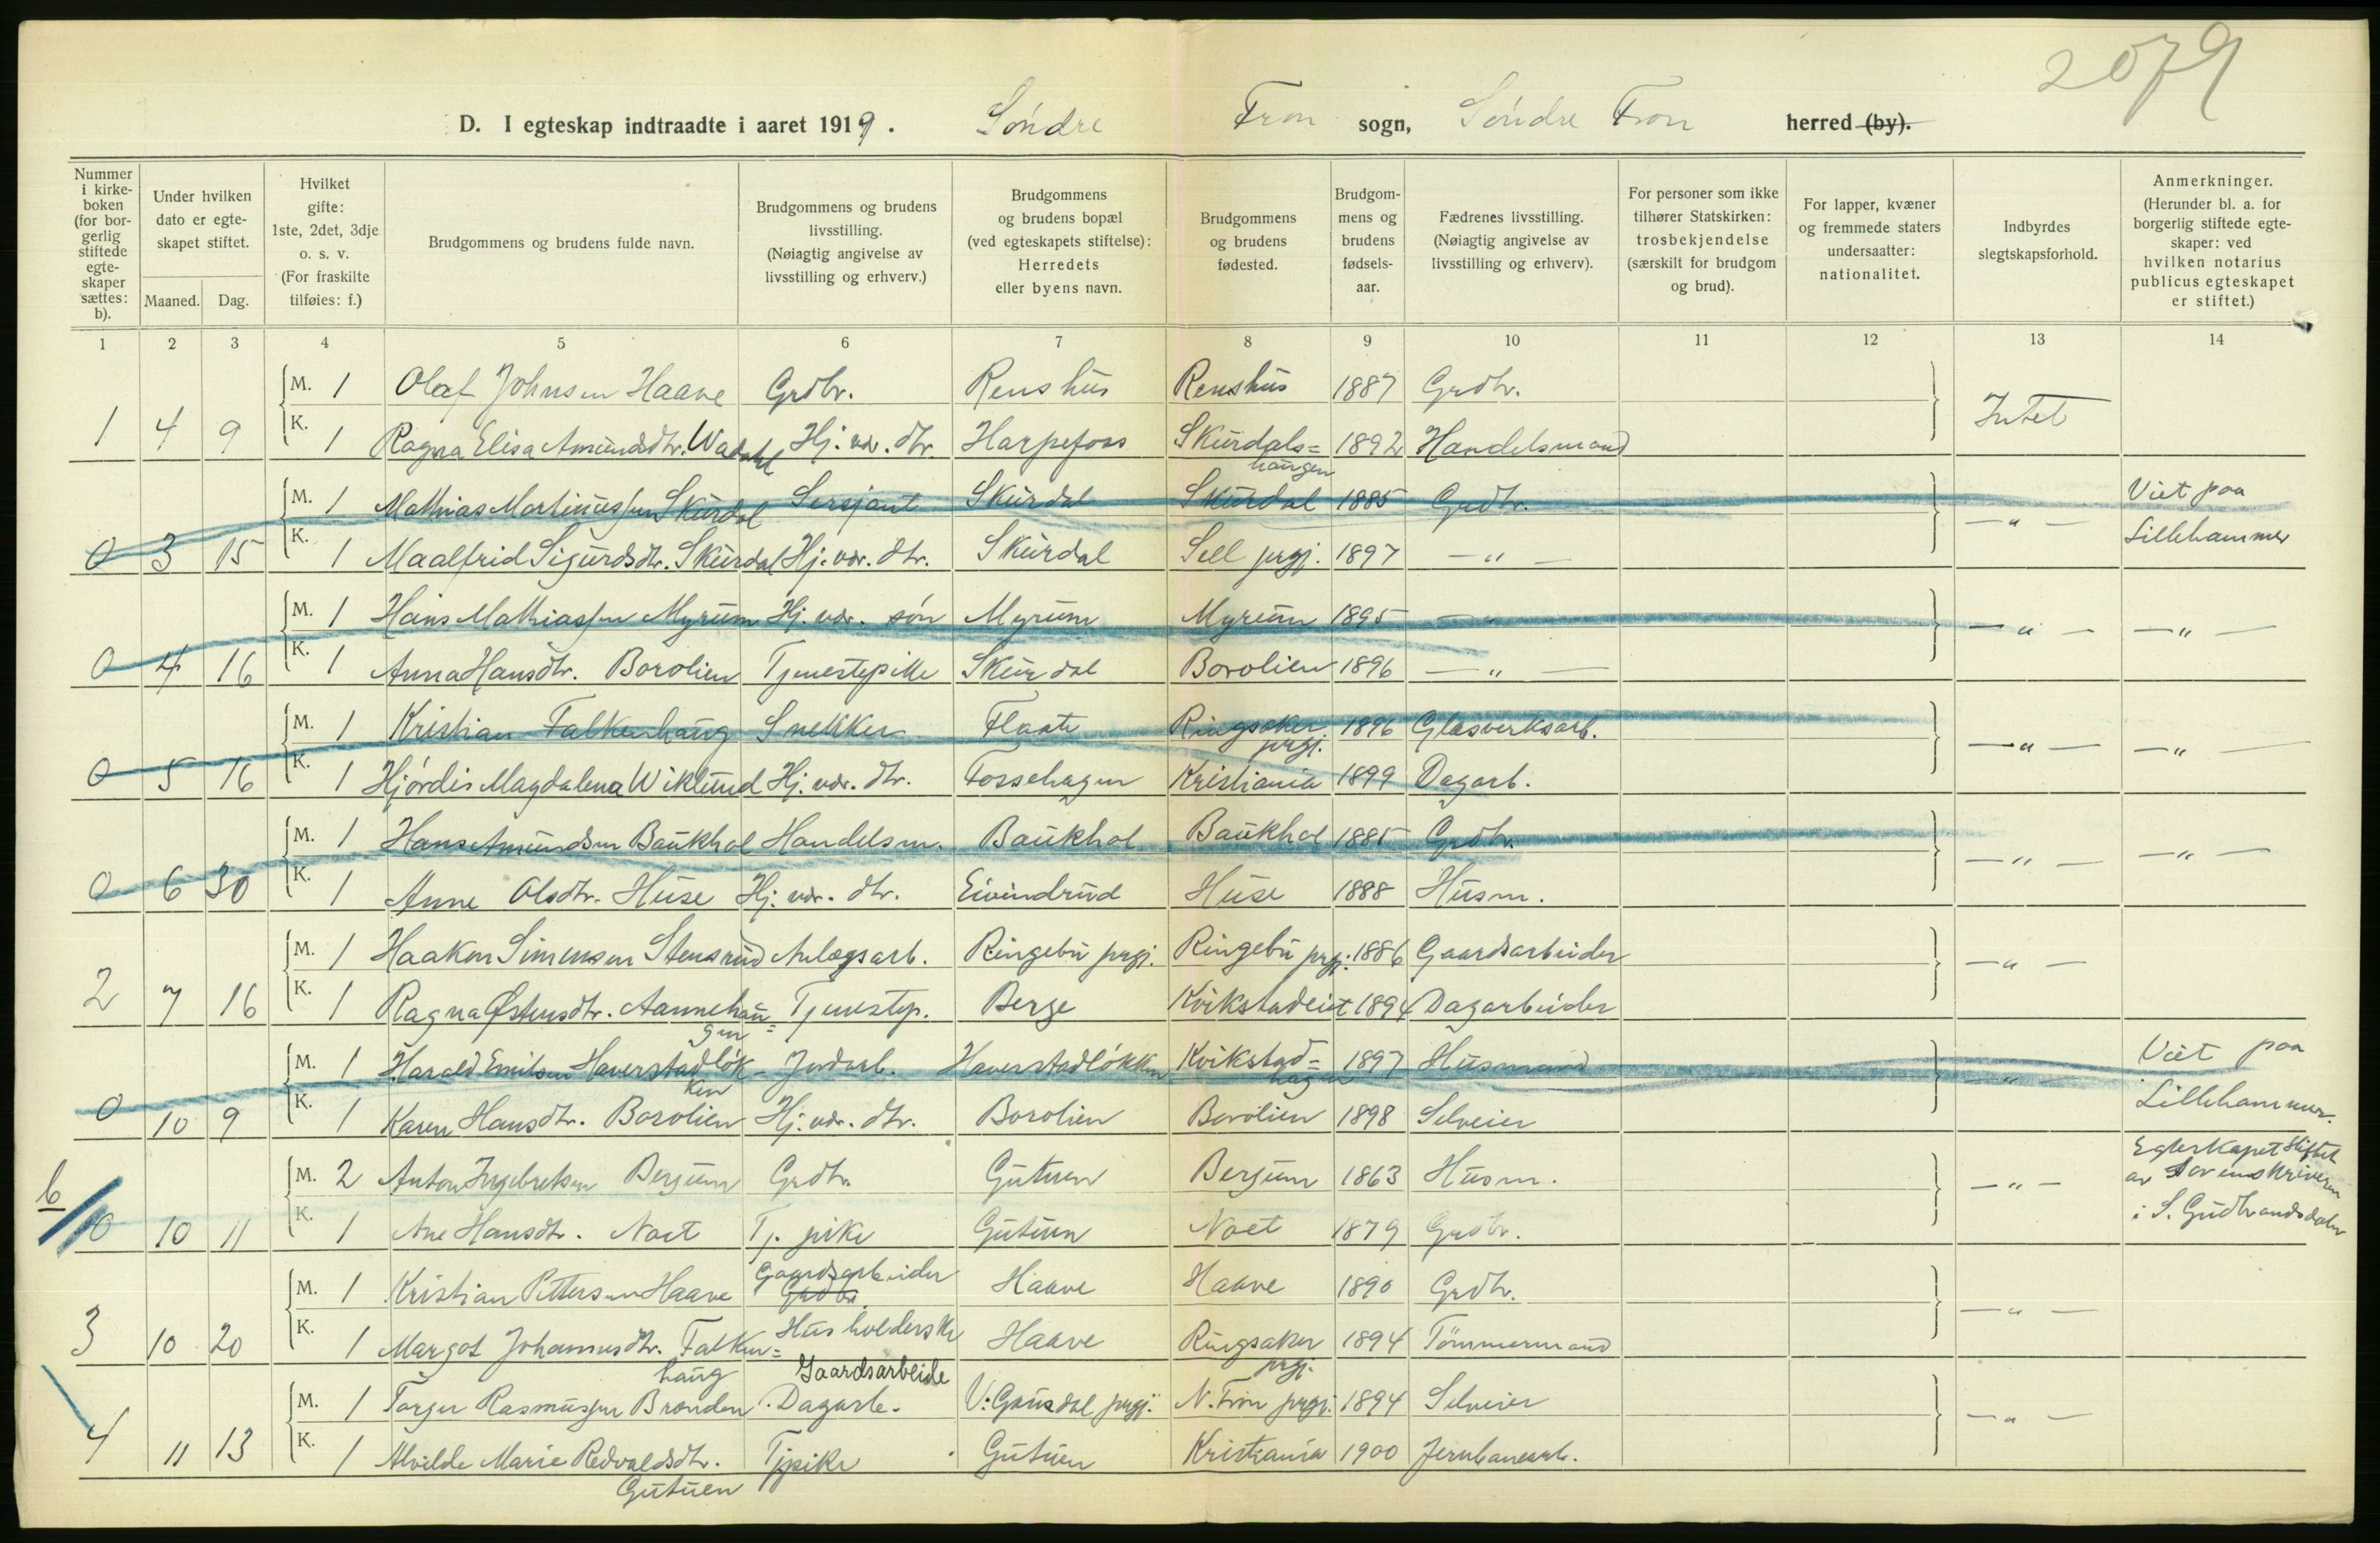 2079
D. I egteskap indtraadte i aaret 1919. Søndre Fron sogn, Søndre Fron herred (by).
Nummer i kirke-boken (for bor-gerlig stiftede egte-skaper sættes: b).
Under hvilken dato er egte-skapet stiftet.
Maaned. Dag.
Hvilket gifte: 1ste, 2det, 3dje o. s. v. (For fraskilte tilføies: f.)
Brudgommens og brudens fulde navn.
Brudgommens og brudens livsstilling. (Nøiagtig angivelse av livsstilling og erhverv.)
Brudgommens og brudens bopæl (ved egteskapets stiftelse): Herredets eller byens navn.
Brudgommens og brudens fødested.
Brudgom-mens og brudens fødsels-aar.
Fædrenes livsstilling. (Nøiagtig angivelse av livsstilling og erhverv).
For personer som ikke tilhører Statskirken: trosbekjendelse (særskilt for brudgom og brud).
For lapper, kvæner og fremmede staters undersaatter: nationalitet.
Indbyrdes slegtskapsforhold.
Anmerkninger. (Herunder bl. a. for borgerlig stiftede egte-skaper: ved hvilken notarius publicus egteskapet er stiftet.)
1 2 3 4 5 6 7 8 9 10 11 12 13 14
M. 1 Olaf Johnsen Haave Grdbr. Renshus Renshus 1887 Grdbr.
1 4 9 K. 1 Ragna Elisa Amundsdtr. Wadahl Hj. vær. dtr. Harpefoss Skurdals=haugen 1892 Handelsmand Intet
M. 1 Mathias Martinussen Skurdal Sersjant Skurdal Skurdal 1885 Grdbr. Viet paa
0 3 15 K. 1 Maalfrid Sigurdsdtr. Skurdal Hj. vær. dtr. Skurdal Sell prgj. 1897 —"— —"— Lillehammer
M. 1 Hans Mathiassen Myrum Hj. vær. søn Myrum Myrum 1895 —"—
0 4 16 K. 1 Anna Hansdtr. Borolien Tjenestepike Skurdal Borolien 1896 —"— —"— —"—
M. 1 Kristian Falkenhaug Snekker Flaate Ringsaker prgj. 1896 Glasverksarb.
0 5 16 K. 1 Hjørdis Magdalena Wiklund Hj. vær. dtr. Fossehagen Kristiania 1899 Dagarb. —"— —"—
M. 1 Hans Amundsen Baukhol Handelsm. Baukhol Baukhol 1885 Grdbr.
0 6 30 K. 1 Anne Olsdtr. Huse Hj. vær. dtr. Eivindrud Huse 1888 Husm. —"— —"—
M. 1 Haaken Simensen Stensrud Anlægsarb. Ringebu prgj. Ringebu prgj. 1886 Gaardsarbeider
2 7 16 K. 1 Ragna Østensdtr. Aannehau=gen Tjenestep. Berge Kvikstadeiet 1894 Dagarbeider —"—
M. 1 Harald Emilsen Haverstadløk-ken Jordarb. Haverstadløkken Kvikstad=hagen 1897 Husmand Viet paa
0 10 9 K. 1 Karen Hansdtr. Borolien Hj. vær. dtr. Borolien Borolien 1898 Selveier —"— Lillehammer.
b M. 2 Anton Ingebretsen Bergum Grdbr. Gutuen Bergum 1863 Husm. Egteskapet stiftet av Sorenskriveren
0 10 11 K. 1 Ane Hansdtr. Noet Tj. pike Gutuen Noet 1879 Grdbr. —"— i S. Gudbrandsdalen
M. 1 Kristian Pettersen Haave Gaardsarbeider Grdbr. Haave Haave 1890 Grdbr.
3 10 20 K. 1 Margot Johannesdtr. Falken=haug Husholderske Haave Ringsaker prgj. 1894 Tømmermand —"—
M. 1 Torger Rasmussen Brænden Gaardsarbeide Dagarb. V. Gausdal prgj. N. Fron prgj. 1894 Selveier
4 11 13 K. 1 Alvilde Marie Redvaldsdtr. Gutuen Tjpike Gutuen Kristiania 1900 Jernbanearb. —"—